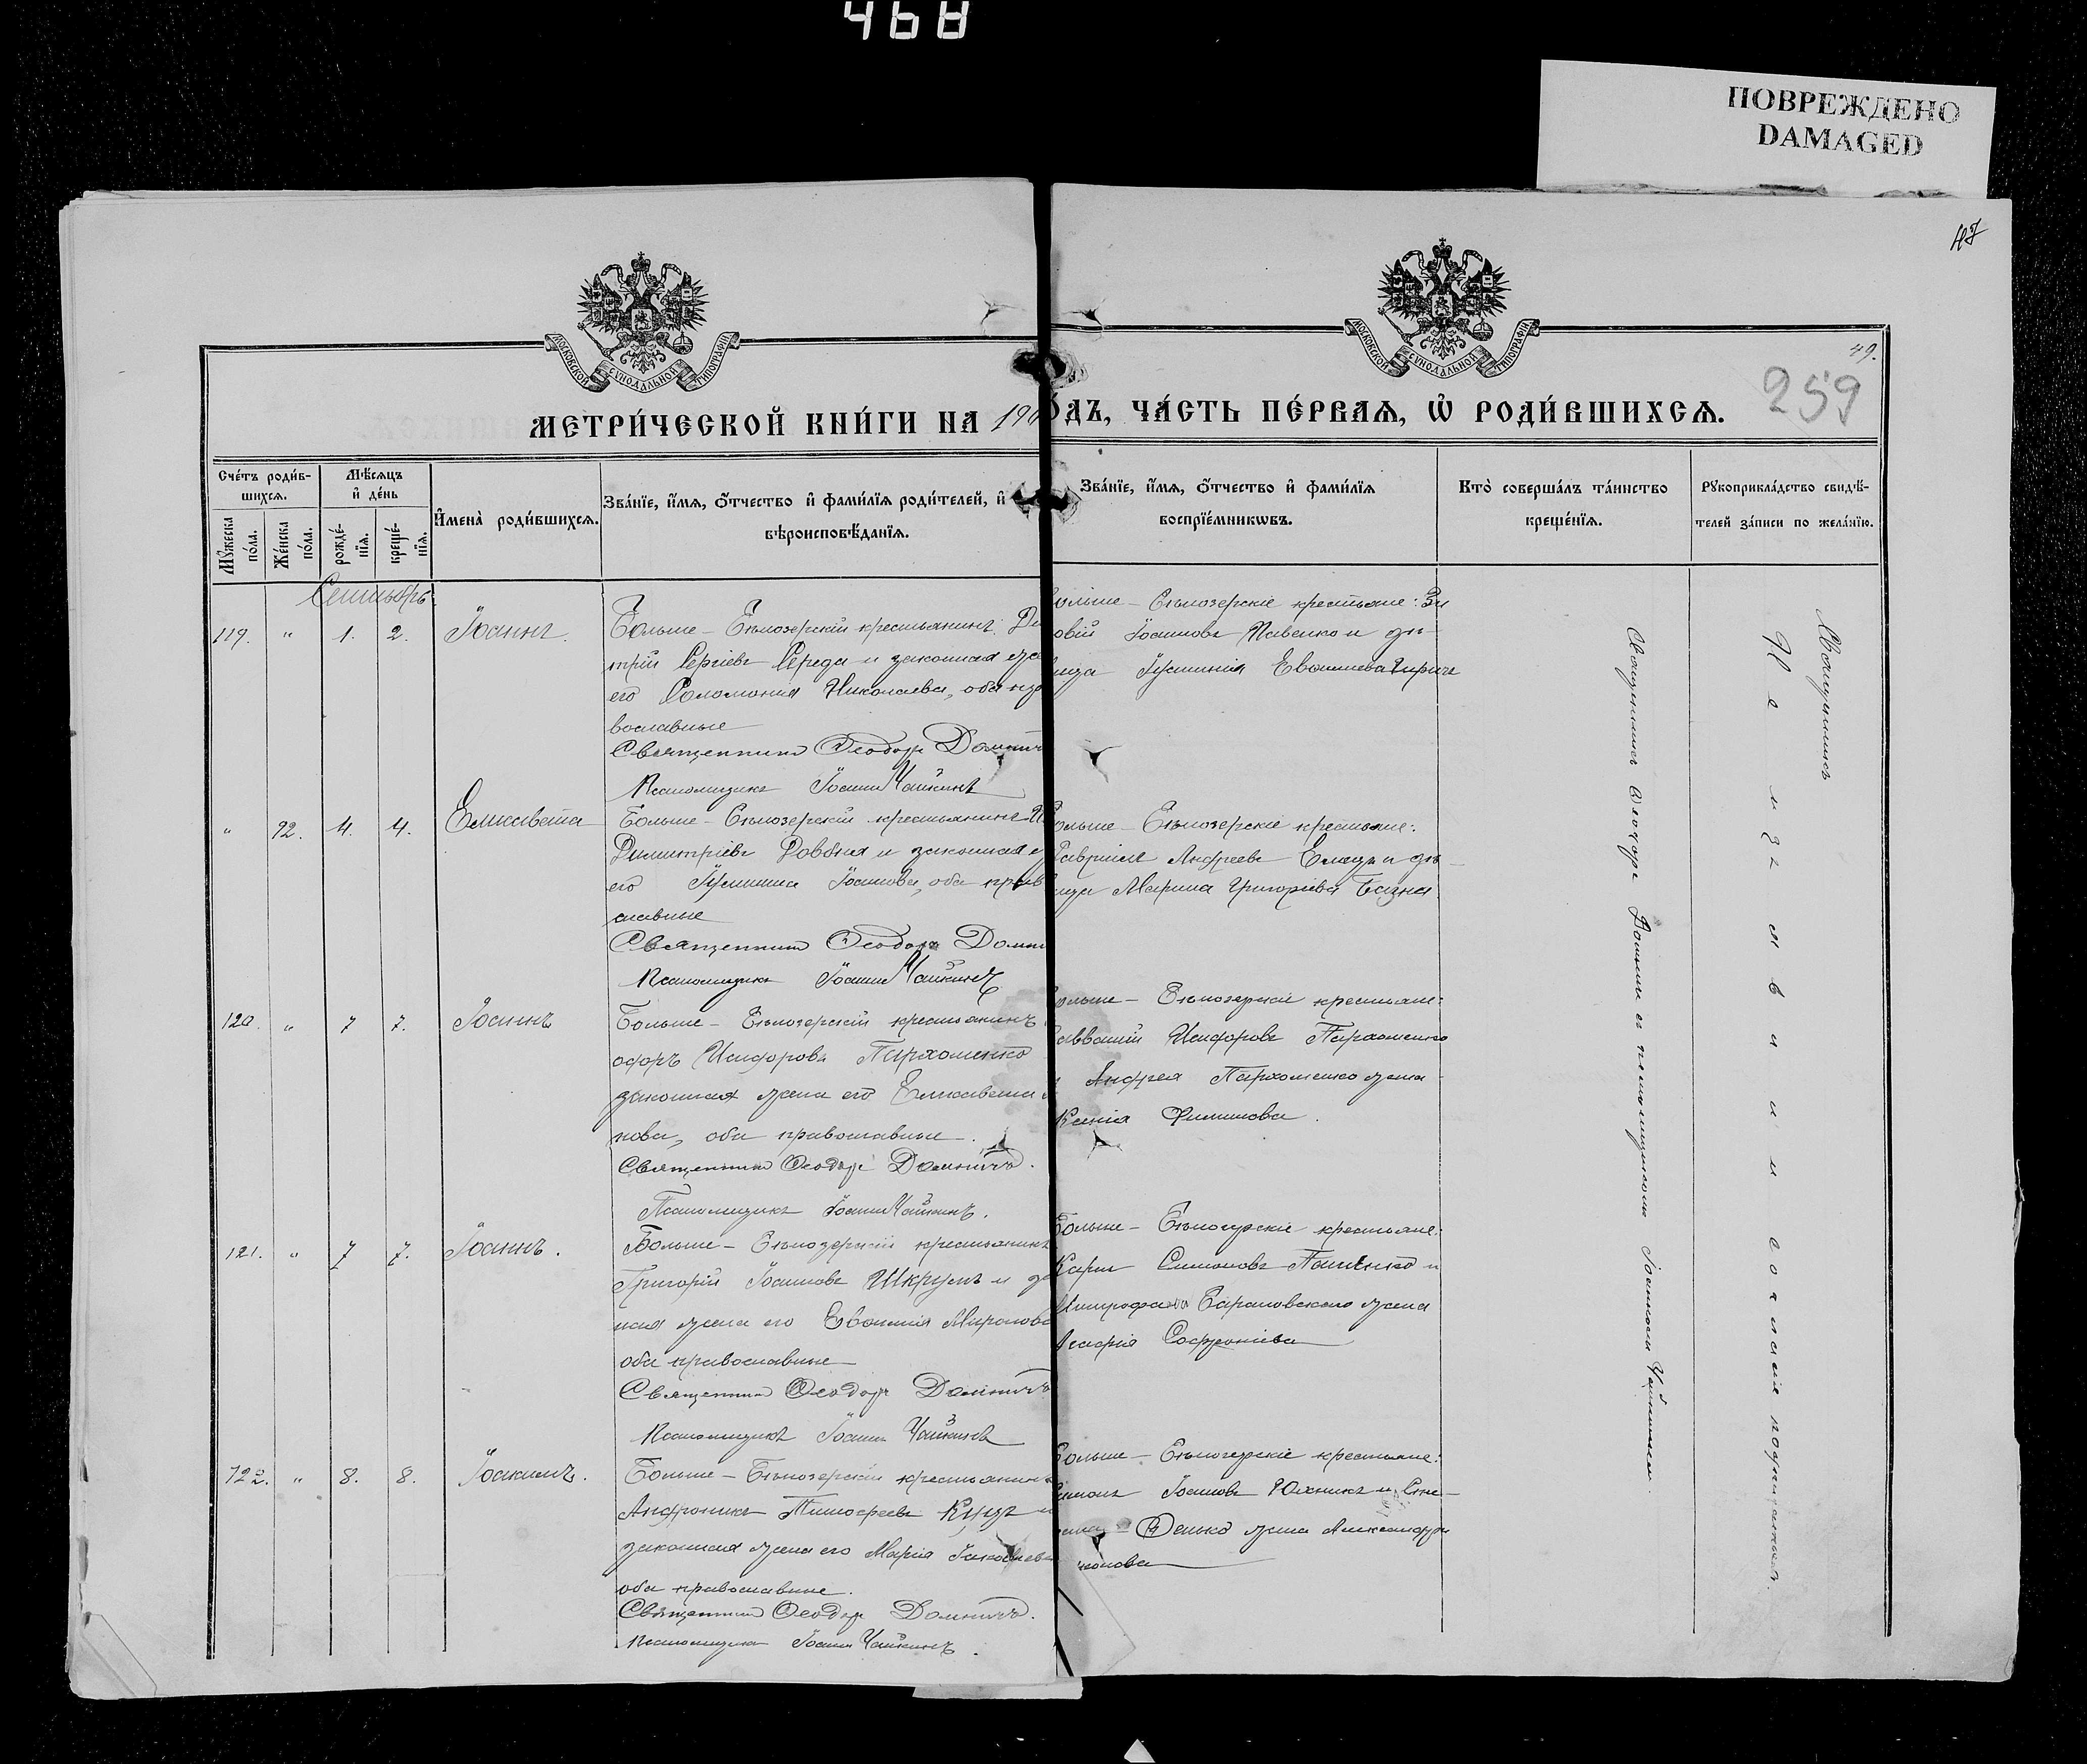 468
ПОВРЕЖДЕНО
DAMAGED
47
МОСКОВСКОЙ СѴНОДАЛЬНОЙ ТИПОГРАФІИ
МОСКОВСКОЙ СѴНОДАЛЬНОЙ ТИПОГРАФІИ
49.
259
МЕТРИ́ЧЕСКОЙ КНИ́ГИ НА 190
О́ДЪ, ЧА́СТЬ ПЕ́РВАѦ, Ѡ҆ РОДИ́ВШИХСѦ.
Сче́тъ роди́в-
шихсѧ.
Мꙋ́жеска
по́ла.
Же́нска
по́ла.
Мѣ́сѧцъ
и҆ де́нь
рожде́-
нїѧ.
креще́-
нїѧ.
И҆мена̀ роди́вшихсѧ.
Зва́нїе, и҆́мѧ, ѻ҆́тчество и҆ фами́лїѧ роди́телей, и҆
вѣроисповѣ́данїѧ.
Зва́нїе, и҆́мѧ, ѻ҆́тчество и҆ фами́лїѧ
воспрїе́мникѡвъ.
Кто̀ соверша́лъ та́инство
креще́нїѧ.
Рꙋкоприкла́дство свидѣ́-
телей за́писи по жела́нїю.
Сентябрь
119. " 1. 2. Іоаннъ.
Больше-Бѣлозерскій крестьянинъ Ди
трій Сергіевъ Середа и законная же
его Соломонія Николаева, оба
вославные
Священникъ Ѳеодоръ Домнич
Псаломщикъ Іоаннъ Чайкинъ
ольше-Бѣлозерскіе крестьяне: Зи
овій Іоанновъ Павенко и дѣ-
вица Іустинія
" 92. 4. 4. Елисавета
Больше-Бѣлозерскій крестьянинъ
Димитріевъ Довбня и законная
его Іустина Іоаннова, оба прав
славные
Священникъ Ѳеодоръ Домни
Псаломщикъ Іоаннъ Чайкинъ
ольше-Бѣлозерскіе крестьяне:
Гавріилъ Андреевъ и дѣ-
вица Марина Григоріева
120. " 7 7. Іоаннъ
Больше-Бѣлозерскій крестьянинъ
офоръ Исидоровъ Пархоменко
законная жена его Елисавета
нова, оба православные.
Священникъ Ѳеодоръ Домничъ.
Псаломщикъ Іоаннъ Чайкинъ.
ольше-Бѣлозерскіе крестьяне:
Исидоровъ Пархоменко
и Андрея Пархоменко жена
Ксенія Филипова.
121. " 7 7. Іоаннъ.
Больше-Бѣлозерскій крестьянинъ
Григорій Іоанновъ Шкрумъ и за
ная жена его Миронова
оба православные
Священникъ Ѳеодоръ Домничъ
Псаломщикъ Іоаннъ Чайкинъ
Больше-Бѣлозерскіе крестьяне:
Карпъ Симоновъ и
Митрофана Барановскаго жена
Агафія Софроніева
122. " 8. 8. Іоакимъ.
Больше-Бѣлозерскій крестьянинъ
Андроникъ Тимофеевъ Куцъ и
законная жена его Марія Іаковлева
оба православные.
Священникъ Ѳеодоръ Домничъ.
Псаломщикъ Іоаннъ Чайкинъ.
Больше-Бѣлозерскіе крестьяне:
Симонъ Іоанновъ Юхникъ и
жена Александра
Священникъ Ѳеодоръ Домничъ съ псаломщикомъ Іоанномъ Чайкинымъ.
Священникъ